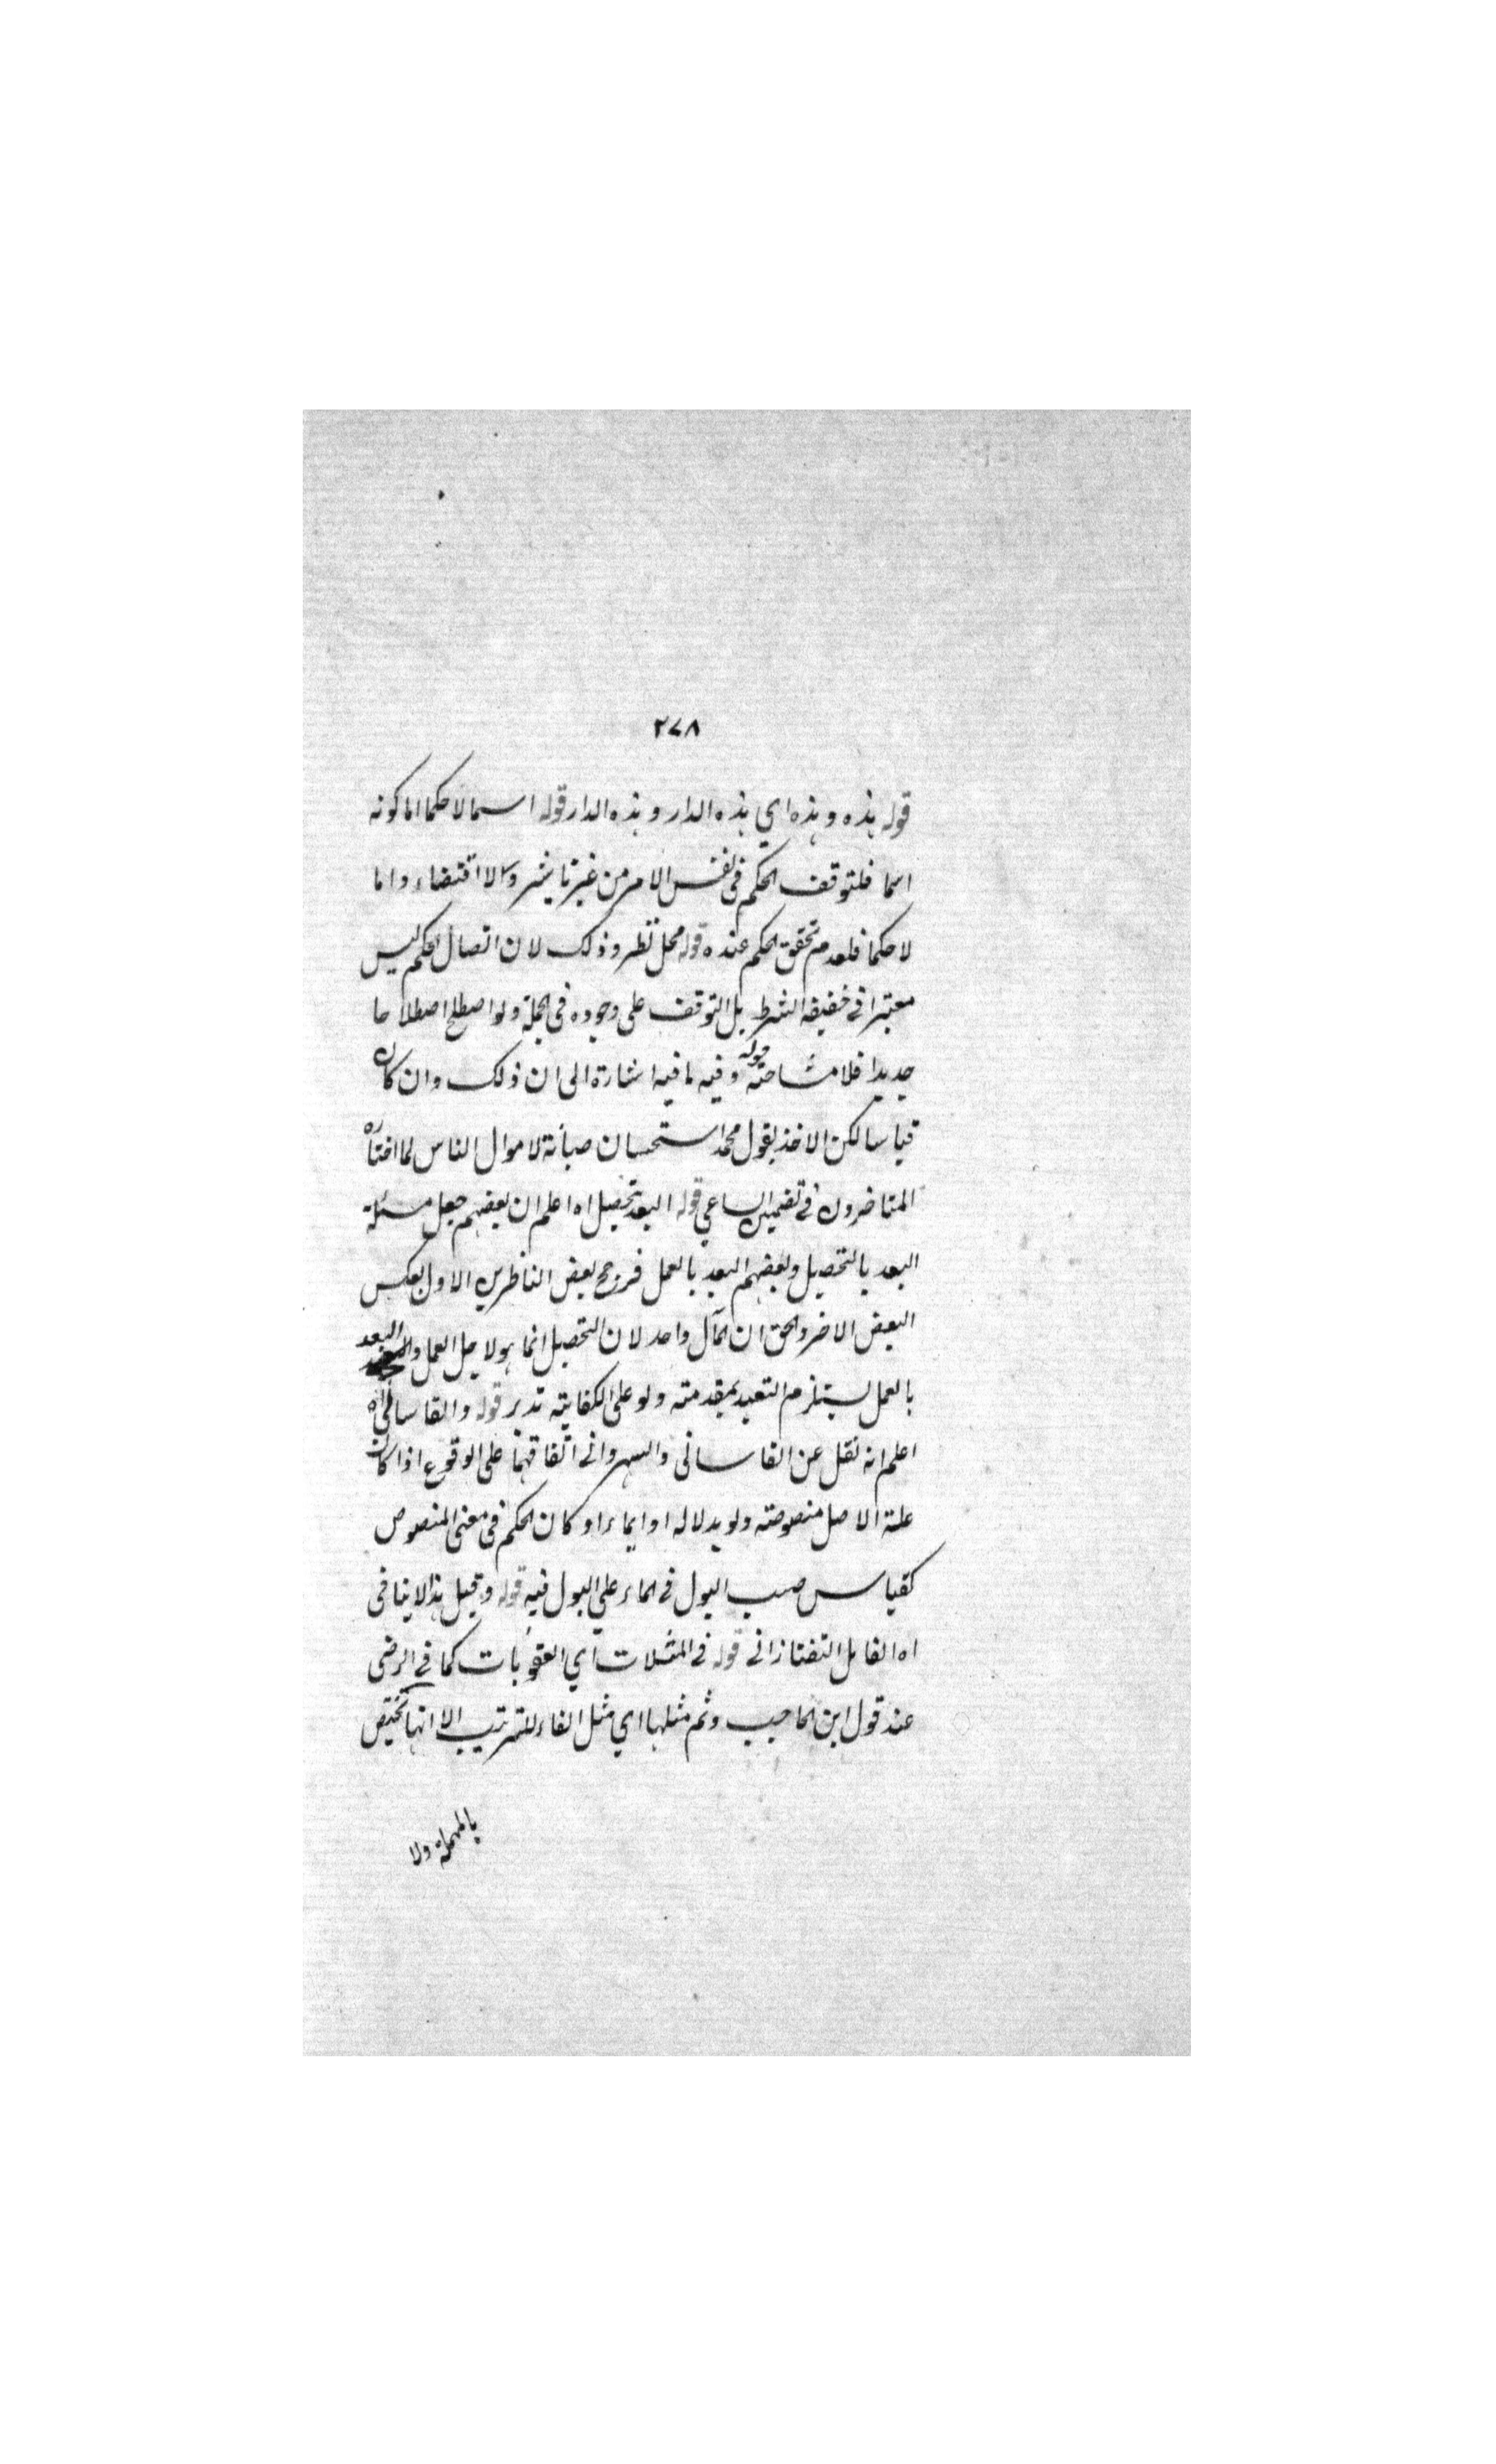 ٢٧٨
قوله هذه وهذه اي هذه الدار وهذه الدار قوله اسما لا حكما اما كونه
اسما فلتوقف الحكم في نفس الامر من غير تاثير ولا اقتضاء واما
لا حكما فلعدم تحقق الحكم عنده قوله محل نظر وذلك لان اتصال الحكم ليس
معتبرا في حقيقة الشرط بل التوقف على وجوده في الجملة ولو اصطلح اصطلاحا
جديدا فلا مشاحة قوله وفيه ما فيه اشارة الى ان ذلك وان كان
قياسا لكن الاخذ بقول محمد استحسان صيانة لاموال الناس لما افتاه
المتاخرون في تضمين الساعي قوله التعبد بتحصيل اه اعلم ان بعضهم جعل مسئلة
التعبد بالتحصيل وبعضهم التعبد بالعمل فرجح بعض الناظرين الاول بعكس
البعض الاخر والحق ان المآل واحد لان التحصيل انما هو لاجل العمل والتعبد
بالعمل يستلزم التعبد بمقدمته ولو على الكفاية تدبر قوله والقاساني اه
اعلم انه نقل عن القاساني والنهرواني اتفاقهما على الوقوع اذا كان
علة الاصل منصوصة ولو بدلالة او ايماء او كان الحكم في معنى المنصوص
كقياس صب البول في الماء على البول فيه قوله وقيل هذا لا ينافي
اه القائل التفتازاني قوله في المثلات اي العقوبات كما في الرضي
عند قول ابن الحاجب وثم مثلها اي مثل الفاء للترتيب الا انها تختص
بالمهملة ولا